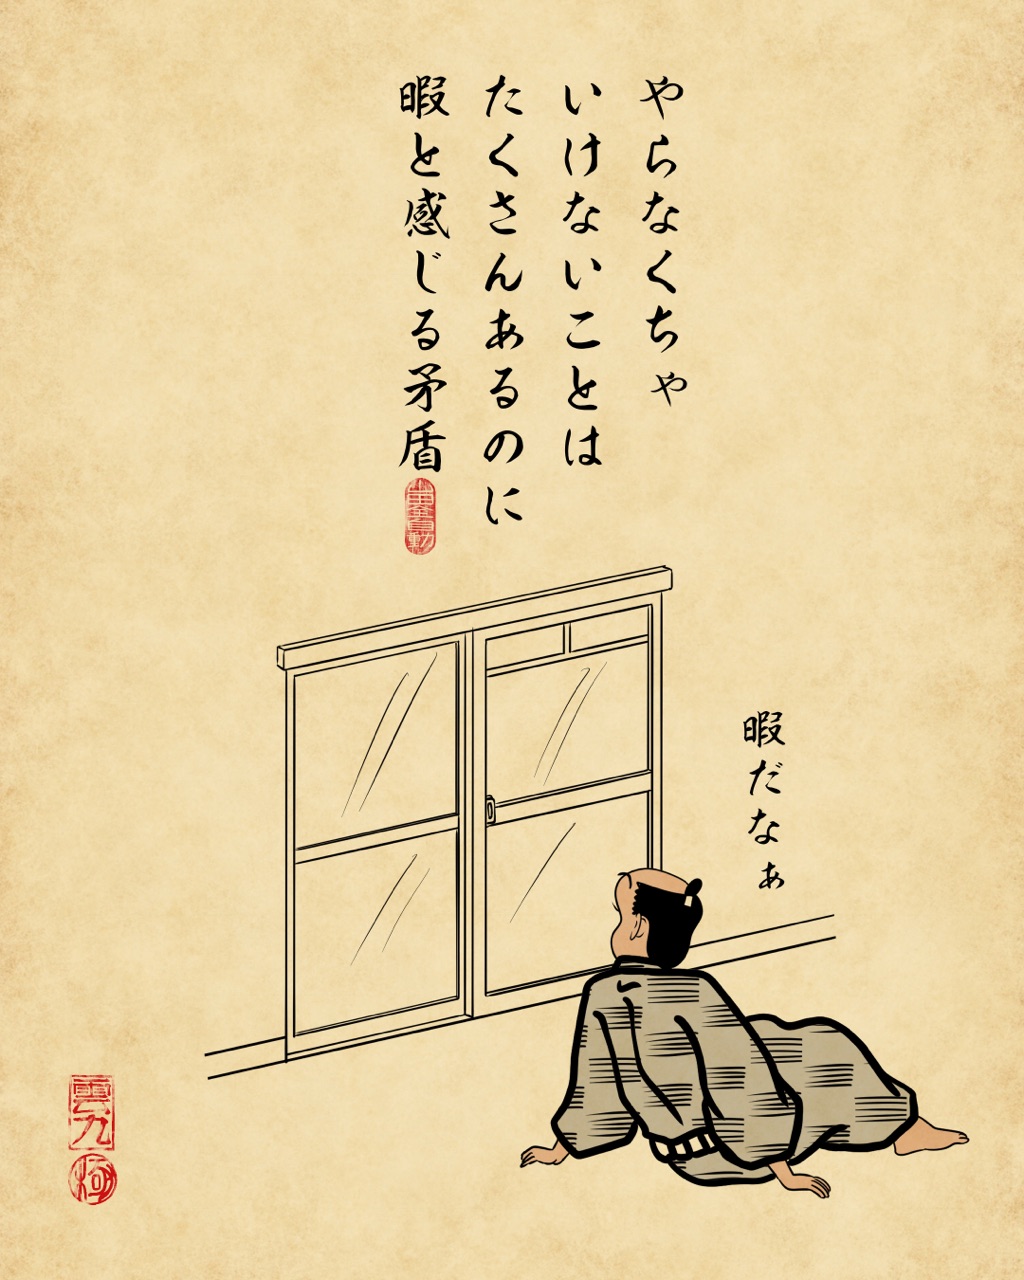 やらなくちゃ
いけないことは
たくさんあるのに
暇と感じる矛盾
暇だなぁ